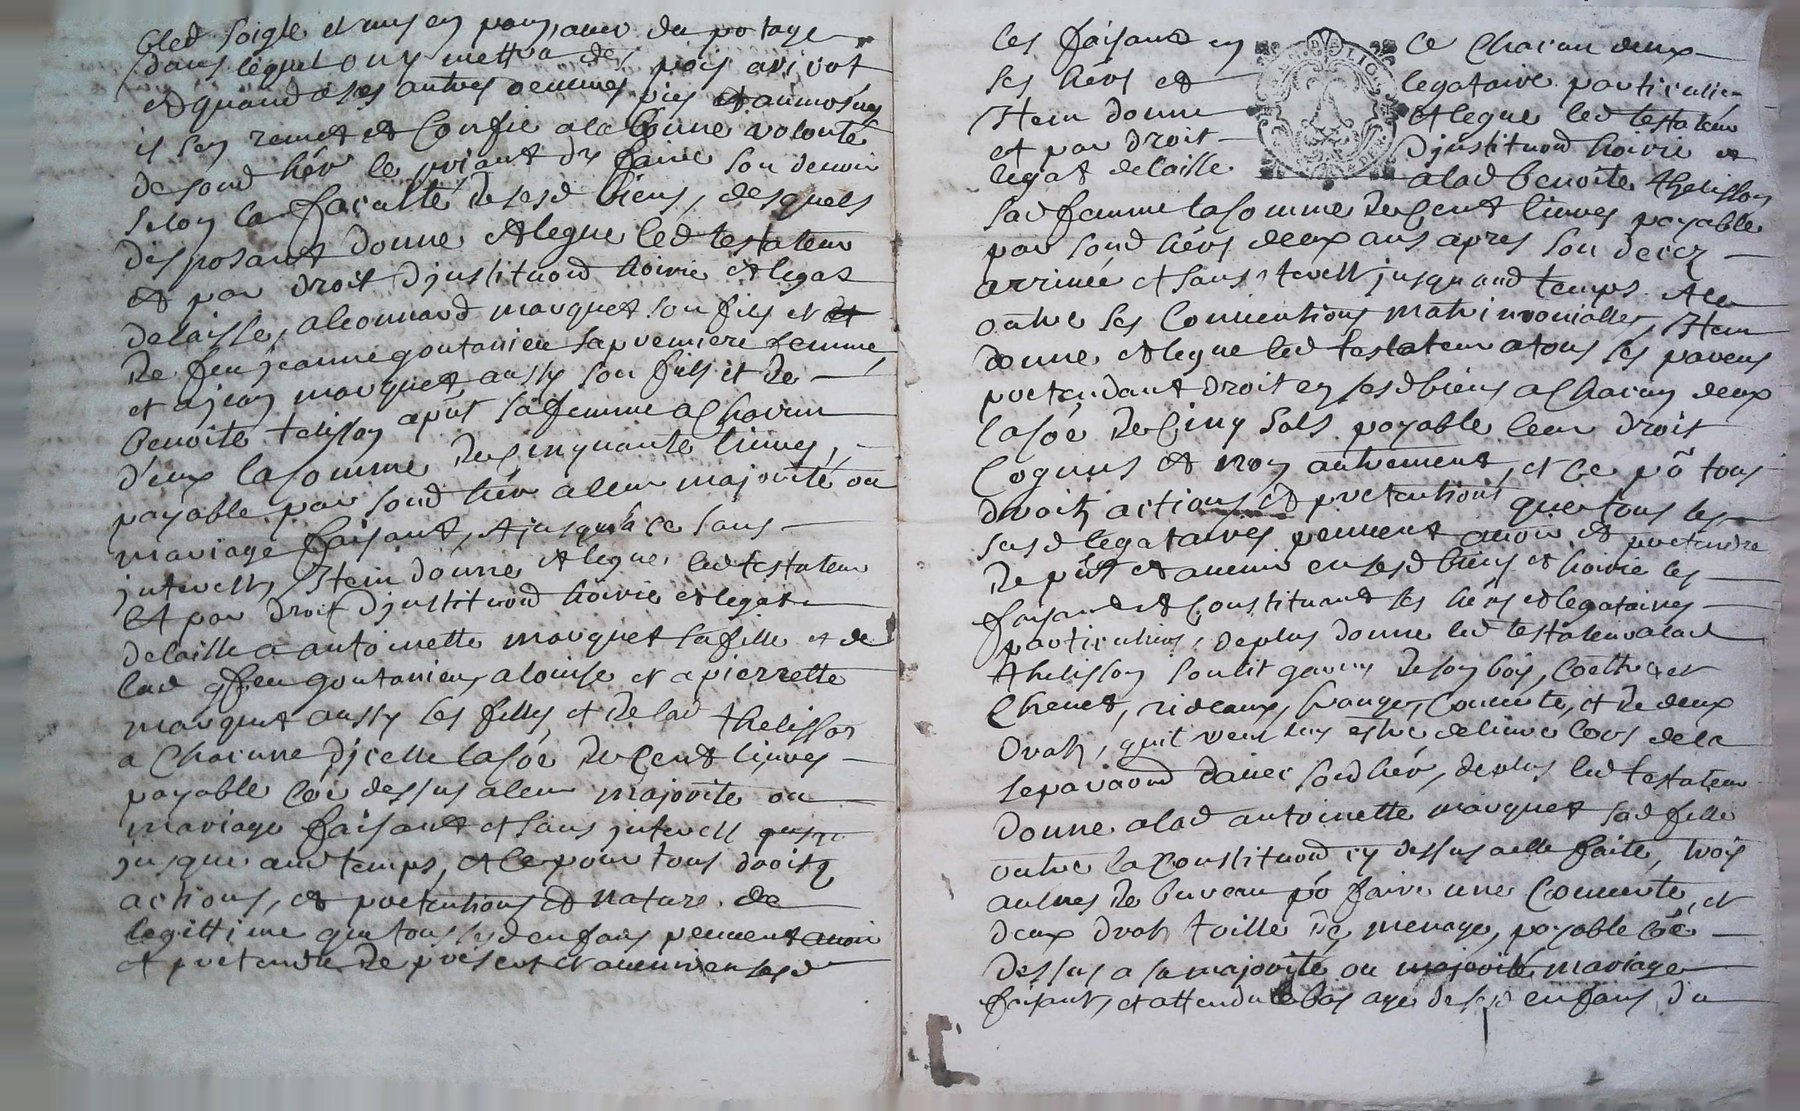 bled soigle et mis en pain, avec du potage
dans lequel on y mettra des pois
et quand a ses autres oeuvres pies et aumosnes
il s'en remet et confie a la bonne volonté
de sond hér le priant d'y faire son devoir
selon la faculté de sesd biens, desquels
disposant donne et legue led testateur
et par droit d'jnstituaõd hoirie et legat
delaisse, a leonnard marquet son fils et
de feu jeanne goutanieu sa premiere femme,
et a jean marquet, aussy son fils et de
benoite telisson apñt sa femme a chacun
d'eux la somme de cinquante livres,
payable par sond hér a leur majorité ou
mariage faisant, et jusqu'à ce sans
jnterests, Item donne et legue led testateur
et par droit d'jnstituaõd hoirie et legat
delaisse a antoinette marquet sa fille et de
lad feu goutanieu, a louise et a pierrette
marquet aussy ses filles, et de lad thelisson
a chacune d'jcelle la sõe de cent livres
payable cõe dessus a leur majorité ou
mariage faisant et sans jnterest
jusque aud temps, et ce pour tous droits
actions, et pretentions et nature de
legittime que tous sesd enfans peuvent avoir
et pretendre de présent et avenir en sesd
les faisant en ce chacun deux
ses hérs et legataire particulier
Item donne et legue led testateur
et par droit d'jnstituaõd hoirie et
legat delaisse a lad benoite thelisson
sad femme la somme de cent livres payable
par sond hérs deux ans apres son decez
arrivée et sans jnterest jusqu'aud temps et ce
outre ses conventions matrimonialles, Item
donne et legue led testateur a tous ses parens
pretendant droit en sesd biens a chacun deux
la sõe de cinq sols payable leur droit
cognus et non autrement, et ce põ tous
droits actions et pretentions que tous les
susd legataires peuvent avoir et pretendre
de pñt et avenir en sesd biens et hoirie les
faisant et constituant ses hérs et legataires
particuliers, de plus donne led testateur a lad
thelisson son lit garny de son bois, coettre et
chevet, rideaux, franges, couverte, et de deux
drats, qu'il veut luy estre delivre lors de la
separaõd d'avec sond hér, de plus led testateur
donne a lad antoinette marquet sad fille
outre la constituaõd cy dessus a elle faite, trois
aulnes de bureau põ faire une couverte, et
deux drats toille de menage, payable cõe
dessus a sa majorité ou majorité mariage
faisant, et attendu le bas age de sesd enfans du